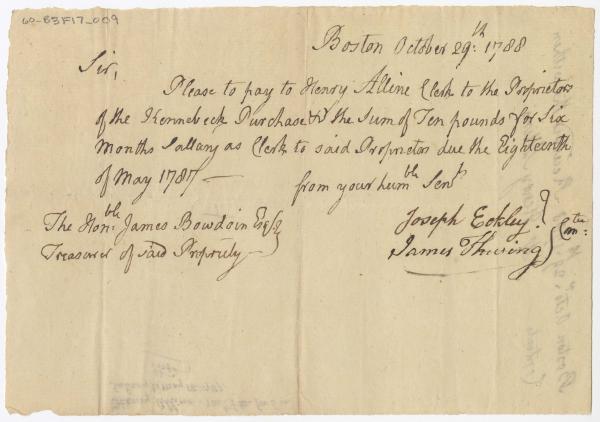 60-B3F17_009
Boston October 29.th 1788
Sir,
Please to pay to Henry Alline Clerk to the Proprietors
of the Kennebeck Purchase &c the Sum of Ten pounds for Six
Months Sallary as Clerk to said Proprietors due the Eighteenth
of May 1787—
from your humble Servts
The Honble James Bowdoin Esqr
Treasurer of said Propriety—
Joseph Eckley
James Thwing
Comtee